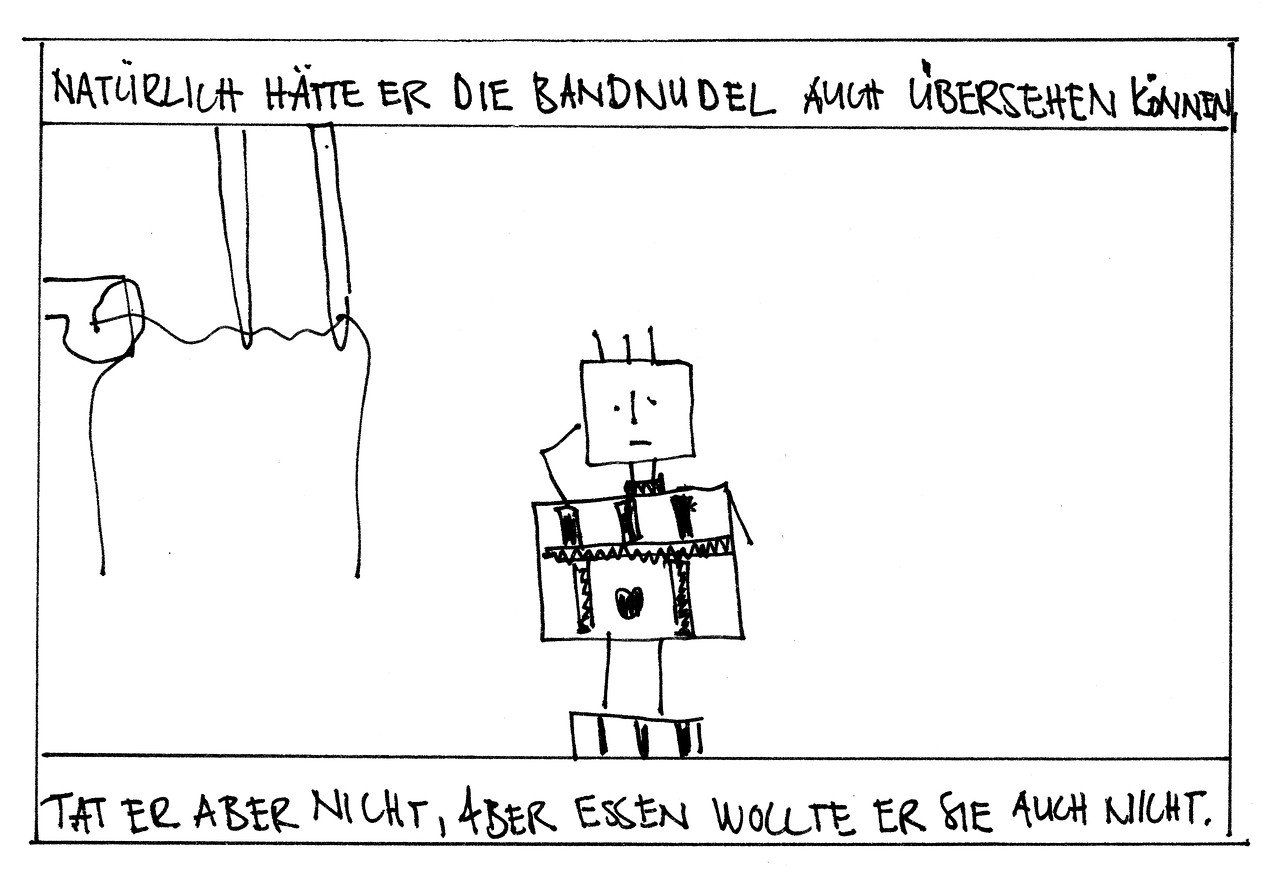 NATÜRLICH HÄTTE ER DIE BANDNUDEL AUCH ÜBERSEHEN KÖNNEN
TAT ER ABER NICHT, ABER ESSEN WOLLTE ER SIE AUCH NICHT.